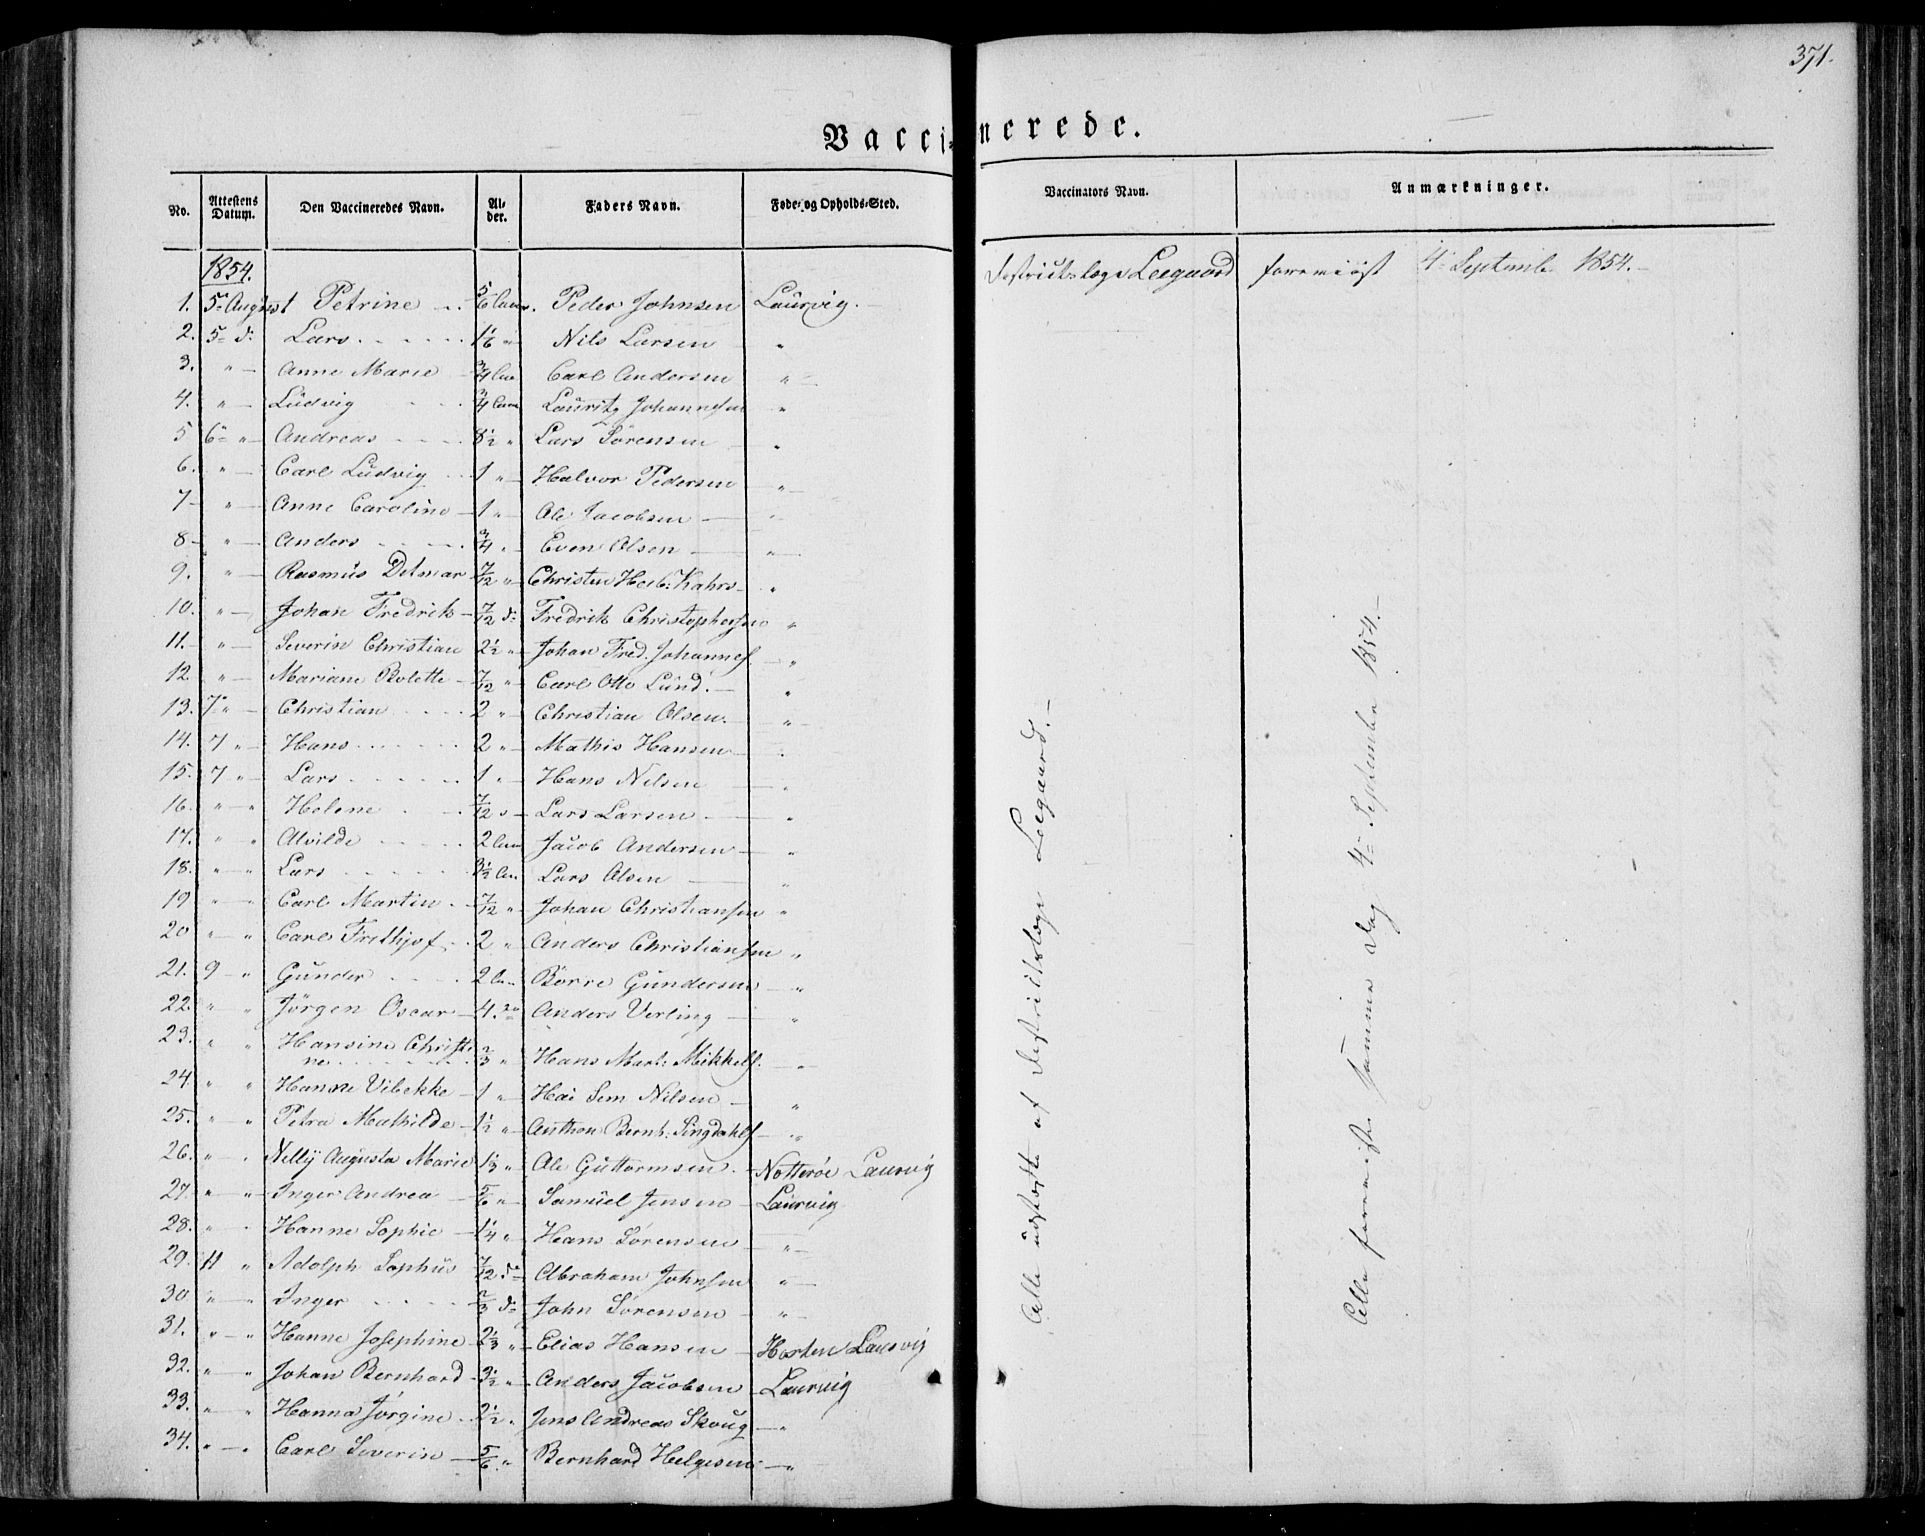 371.
Vaccinerede.
No. | Attestens Datum. | Den Vaccineredes Navn. | Alder. | Faders Navn. | Føde- og Opholds-Sted. | Vaccinators Navn. | Anmærkninger.
1854.
1. 5te August Petrine 5/6 Peder Johnsen Laurvig. Districtslæge Leegaard foreviist 4de Septembr 1854.
2. 5te do Lars 1 1/6 " Nils Larsen "
3. " Anne Marie 3/4 Carl Andersen "
4. " Ludvig 3/4 Lauritz Johannesen "
5 6te " Andreas 8 1/2 " Lars Sörensen "
6. " Carl Ludvig 1 " Halvor Pedersen "
7 " Anne Caroline 1 " Ole Jacobsen "
8 " Anders 3/4 " Even Olsen "
9. " Rasmus Detmar 7/12 " Christen Herb: Kahrs "
10. " Johan Fredrik 7/12 do Fredrik Christophersen "
11. " Severin Christian 2 1/2 " Johan Fred. Johannes. "
12 " Mariane Bolette 7/12 " Carl Otto Lund. "
13. 7de " Christian 2 " Christian Olsen. "
14. 7 " Hans 2 " Mathis Hansen "
15. 7 " Lars 1 " Hans Nilsen "
16. " " Helene 7/12 " Lars Larsen "
17. " " Alvilde 2 Jacob Andersen "
18. " " Lars 3 1/2 Lars Olsen "
19 " " Carl Martin 7/12 " Johan Christiansen "
20 " " Carl Frithjof 2 " Anders Christiansen "
21. 9 " Gunder 2 Börre Gundersen "
22. " " Jörgen Oscar 4. do Anders Verling "
23. " " Hansine Christine 2/3 " Hans Mart: Mikkels. "
24. " " Hanne Vibekke 1 " Hai Sem Nilsen "
25. " " Petra Mathilde 1 1/2 " Anthon Bernh: Singdahls "
26. " " Nelly Augusta Marie 1 1/3 " Ole Guttormsen Nøtterøe Laurvig
27. " " Inger Andrea 5/6 " Samuel Jensen Laurvig
28. " " Hanne Sophie 1 1/4 " Hans Sörensen "
29. 11 " Adolph Sophus 7/12 do Abraham Johnsen "
30 " " Inger 2/3 do John Sörensen "
31. " " Hanne Josephine 2 1/3 " Elias Hansen Horten Laurvig
32. " " Johan Bernhard 3 1/2 " Anders Jacobsen Laurvig
33. " " Hanna Jörgine 2 1/2 " Jens Andreas Skoug "
34. " " Carl Severin 5/6 " Bernhard Helgesen "
Alle udstedte af Districtslæge Leegaard.
Alle foreviiste samme Dag 4de Septembr 1854.